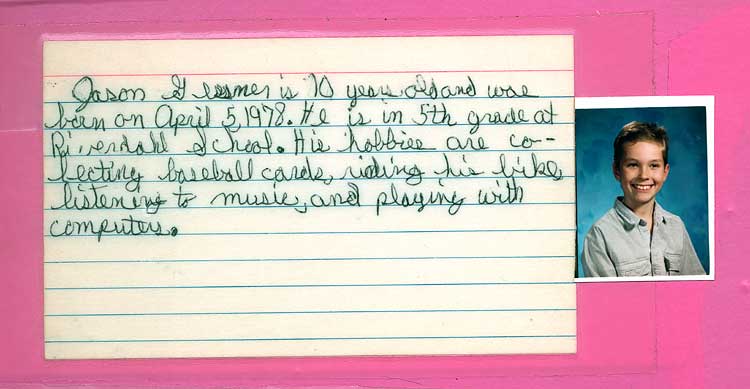 Jason Glessner is 10 years old and was
born on April 5, 1978. He is in 5th grade at
Riverdall School. His hobbies are co-
lecting baseball cards, riding his bike,
listening to music, and playing with
computers.